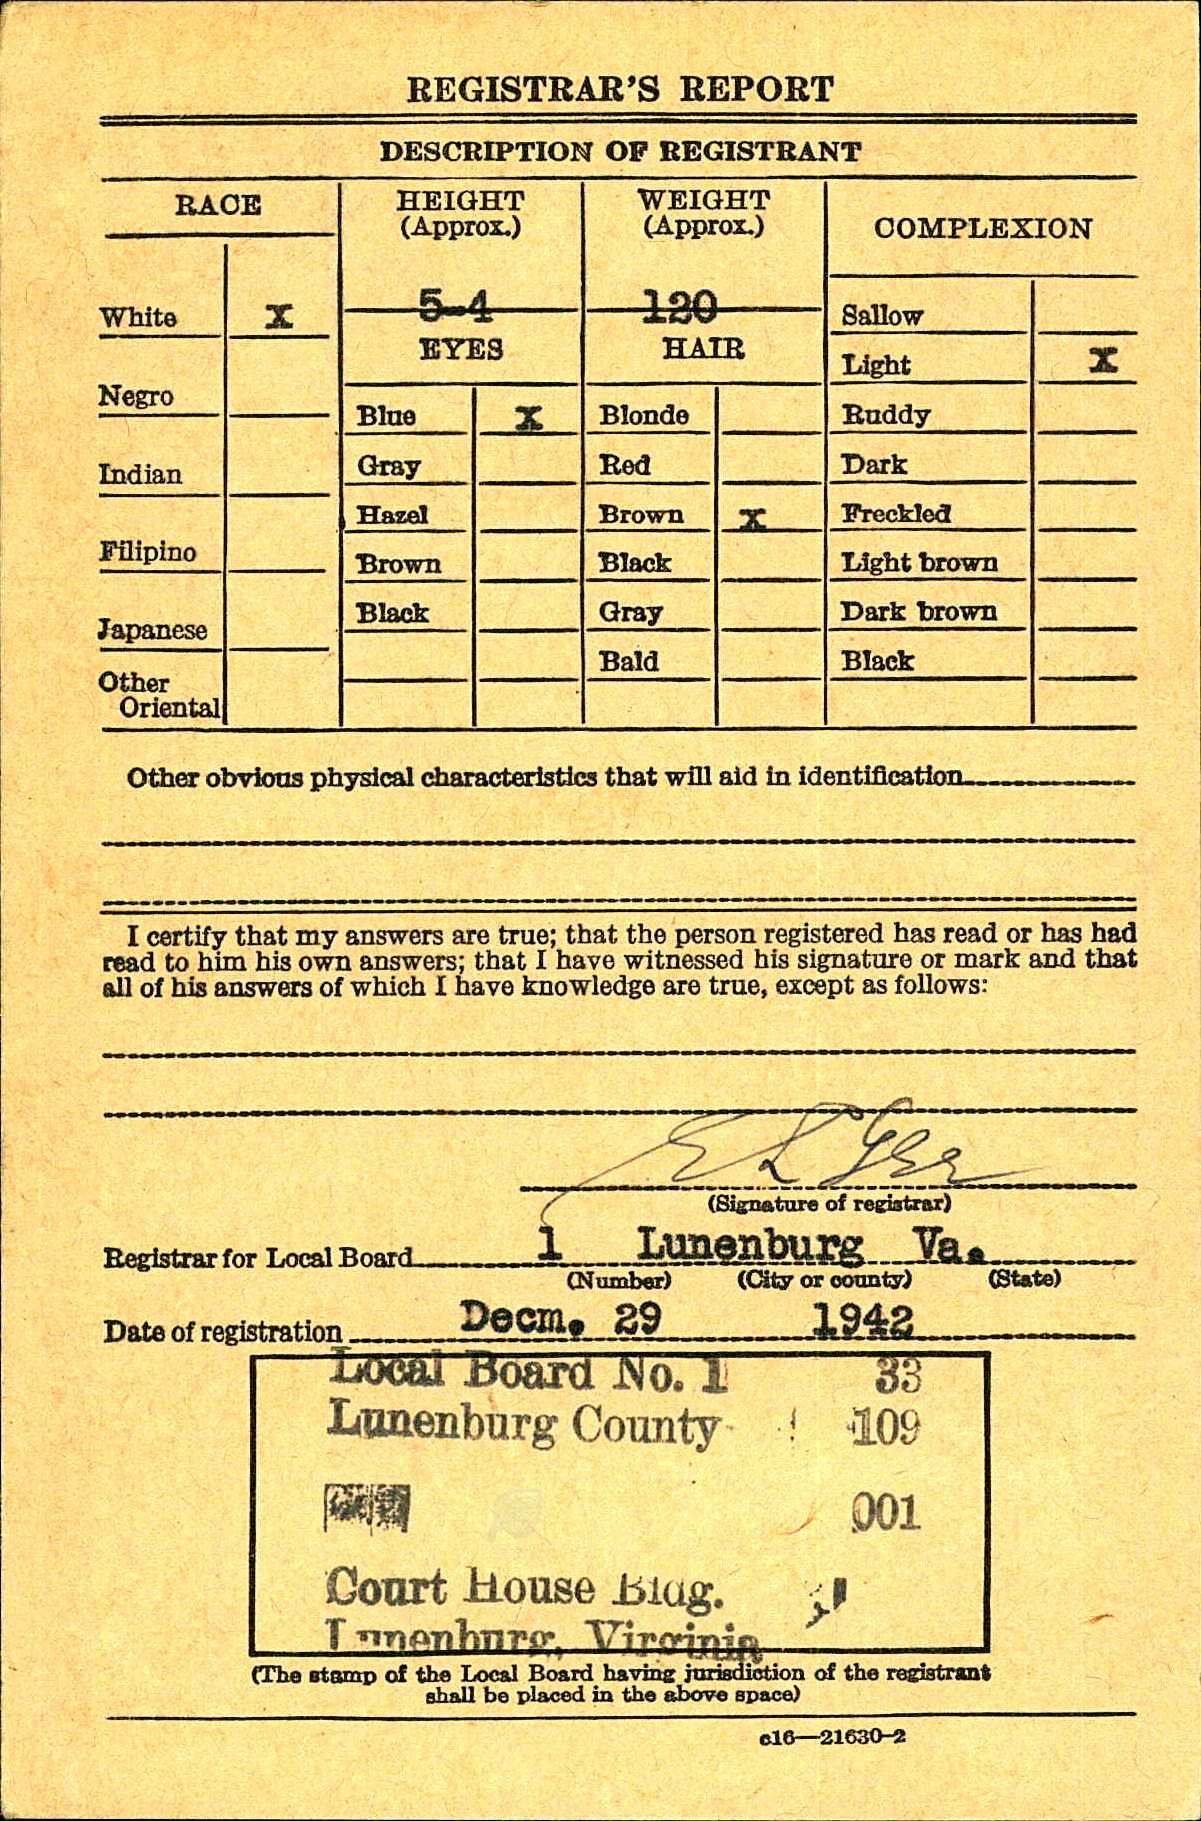 REGISTRAR'S REPORT
DESCRIPTION OF REGISTRANT
RACE
HEIGHT
(Approx.)
WEIGHT
(Approx.)
COMPLEXION
White X
5-4
120
Sallow
EYES
HAIR
Light X
Negro
Blue X
Blonde
Ruddy
Indian
Gray
Red
Dark
Hazel
Brown X
Freckled
Filipino
Brown
Black
Light brown
Japanese
Black
Gray
Dark brown
Other
Oriental
Bald
Black
Other obvious physical characteristics that will aid in identification
I certify that my answers are true; that the person registered has read or has had
read to him his own answers; that I have witnessed his signature or mark and that
all of his answers of which I have knowledge are true, except as follows:
E L Gee
(Signature of registrar)
Registrar for Local Board 1 Lunenburg Va.
(Number) (City or county) (State)
Date of registration Decm. 29 1942
Local Board No. 1 33
Lunenburg County 109
001
Court House Bldg.
Lunenburg, Virginia
(The stamp of the Local Board having jurisdiction of the registrant
shall be placed in the above space)
c16—21630-2